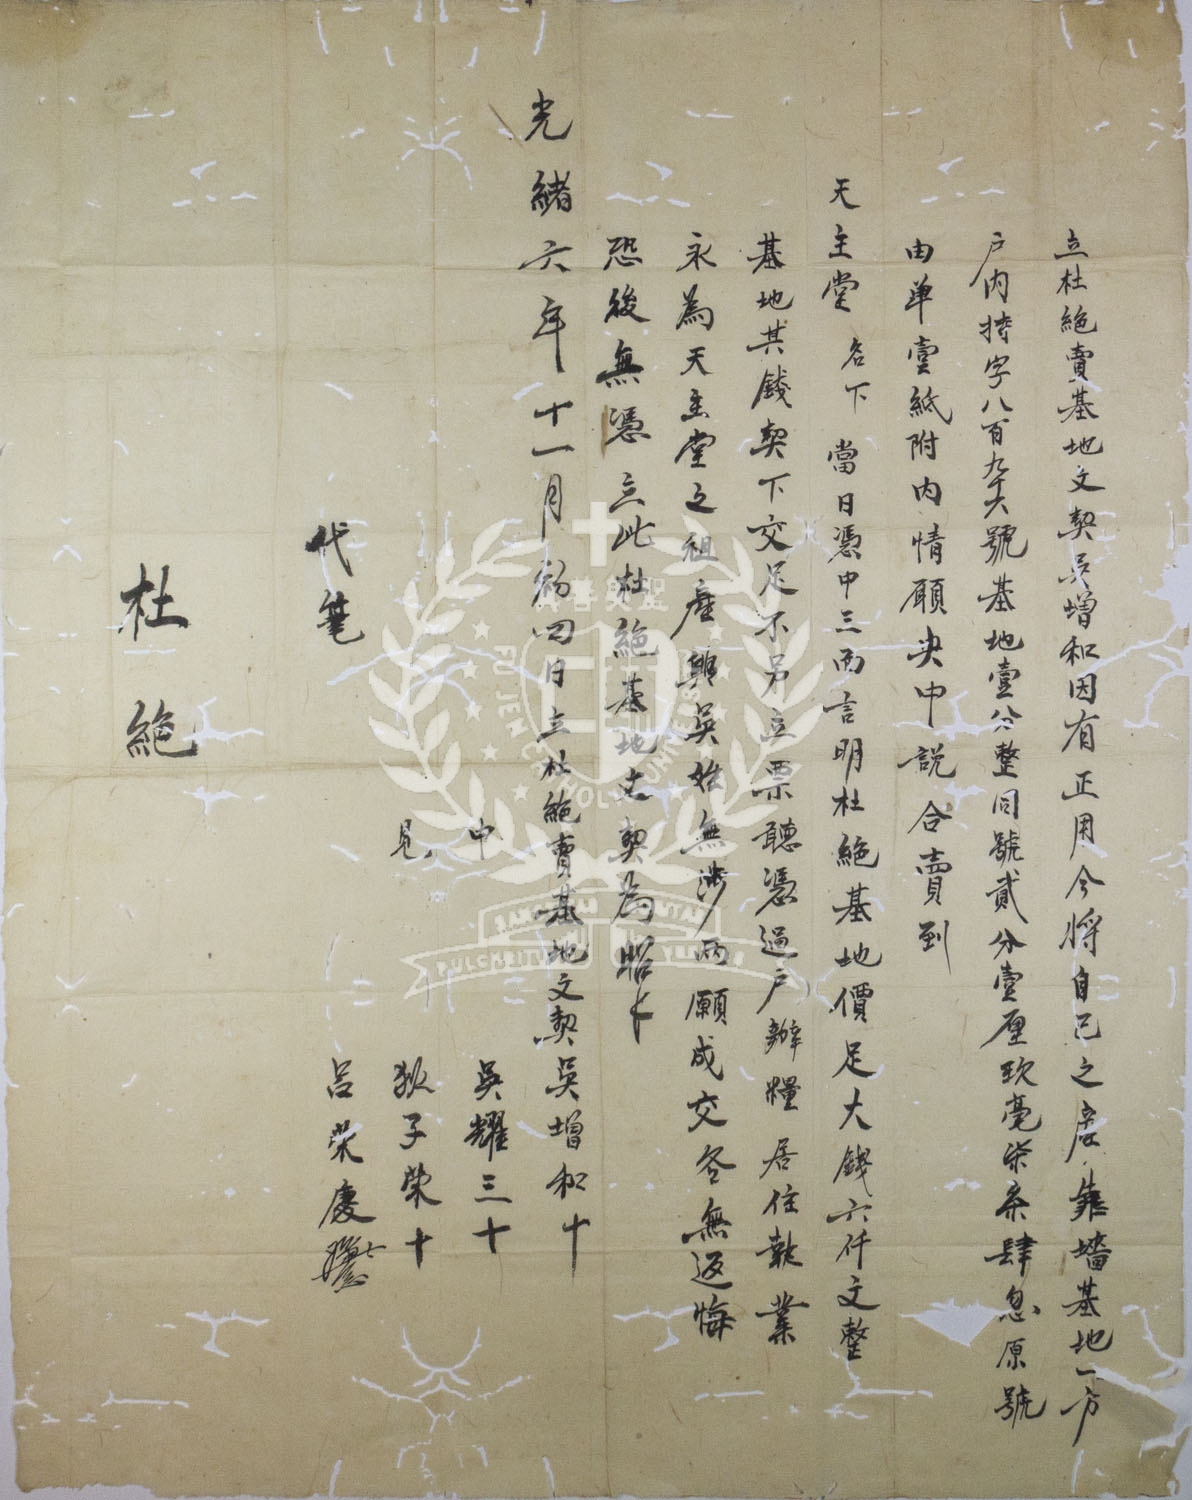 立杜絕賣基地文契吳增和因有正用今將自己之產靠墻基地一方
戶内持字八百九十六號基地壹分整同號貳分壹厘玖毫柒系肆息原號
由單壹紙附内情願央中說合賣到
天主堂名下當日憑中三面言明杜絕基地價足大錢六仟文整
基地其錢契下交足不另立票聽憑過戶辦糧居住執業
永為天主堂之祖產與吳姓無涉兩願成交各無返悔
恐後無憑立此杜絕基地文契為照
光緒六年十一月初四日立杜絕賣基地文契吳增和十
中 吳耀三十
見 狄子榮十
代筆 呂榮慶
杜絕
FU JEN CATHOLIC UNIVERSITY